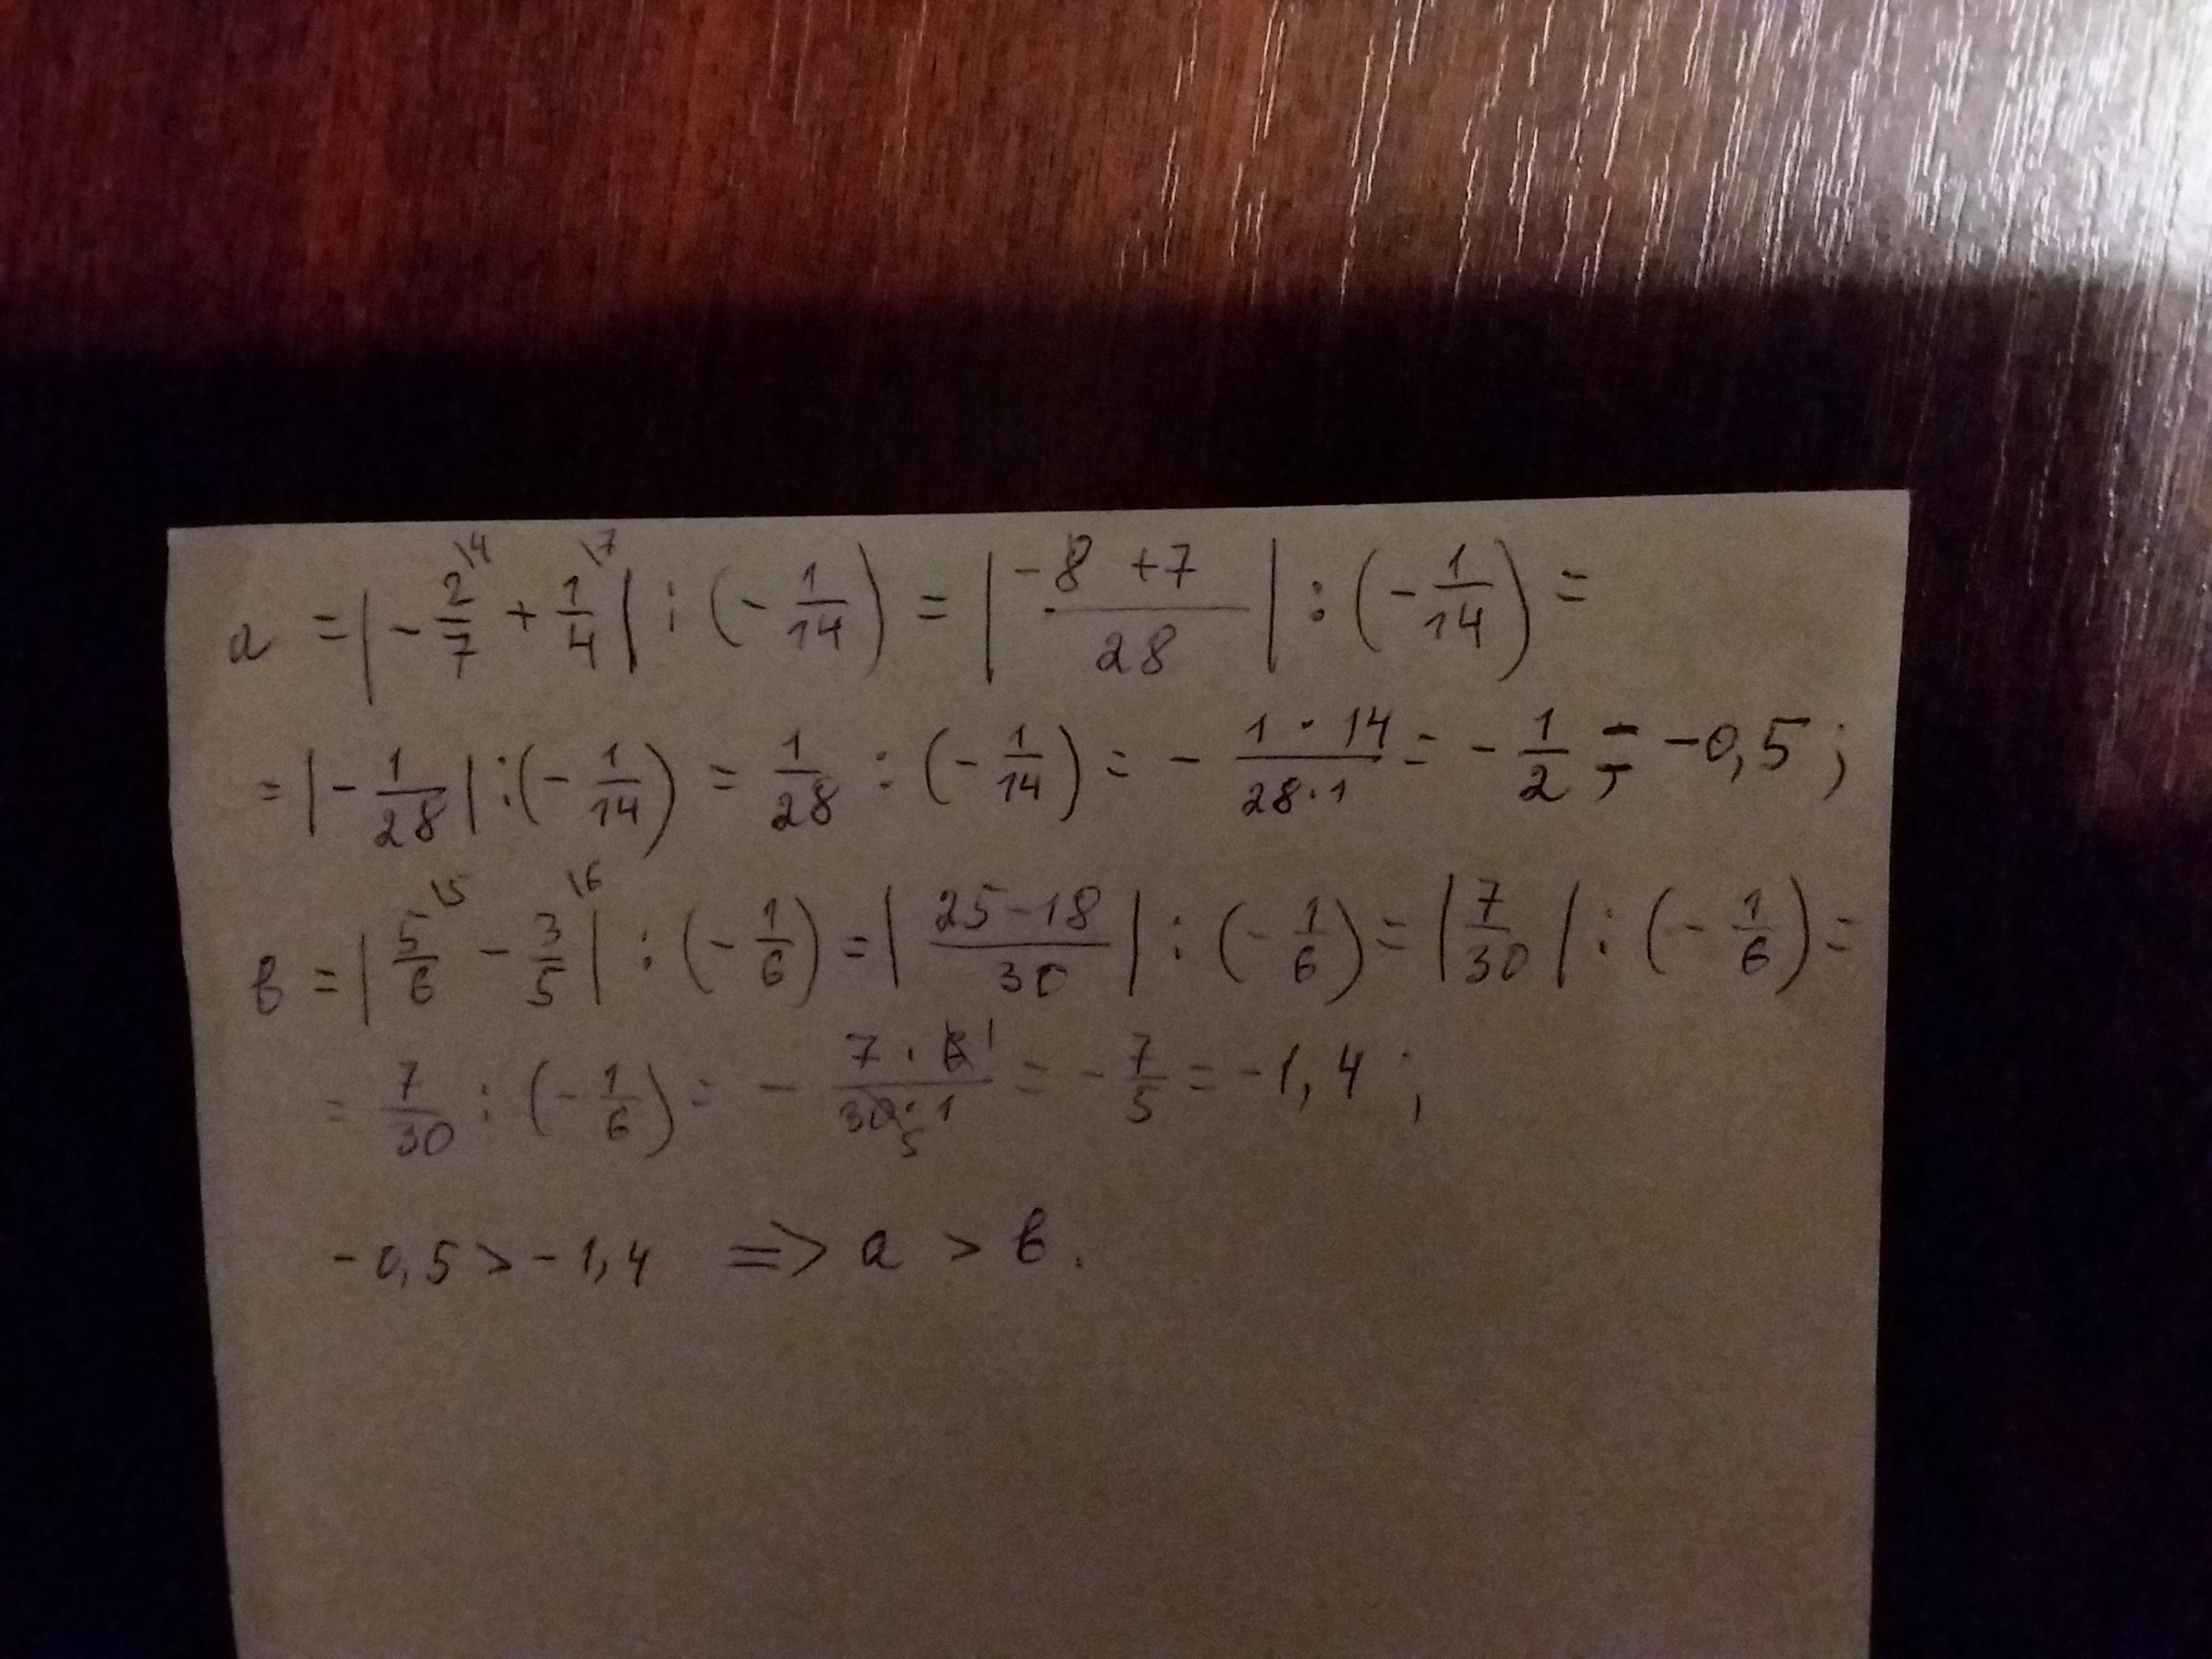 a = |-2/7\4 + 1/4\7| : (-1/14) = |(-8 +7)/28| : (-1/14) =
= |-1/28| : (-1/14) = 1/28 : (-1/14) = - (1 · 14)/(28 · 1) = - 1/2 = -0,5 ;
в = |5/6\5 - 3/5\6| : (-1/6) = |(25-18)/30| : (-1/6) = |7/30| : (-1/6) =
= 7/30 : (-1/6) = - (7 · 6 1)/(30 5 · 1) = - 7/5 = -1,4 ;
-0,5 > -1,4 => a > в.